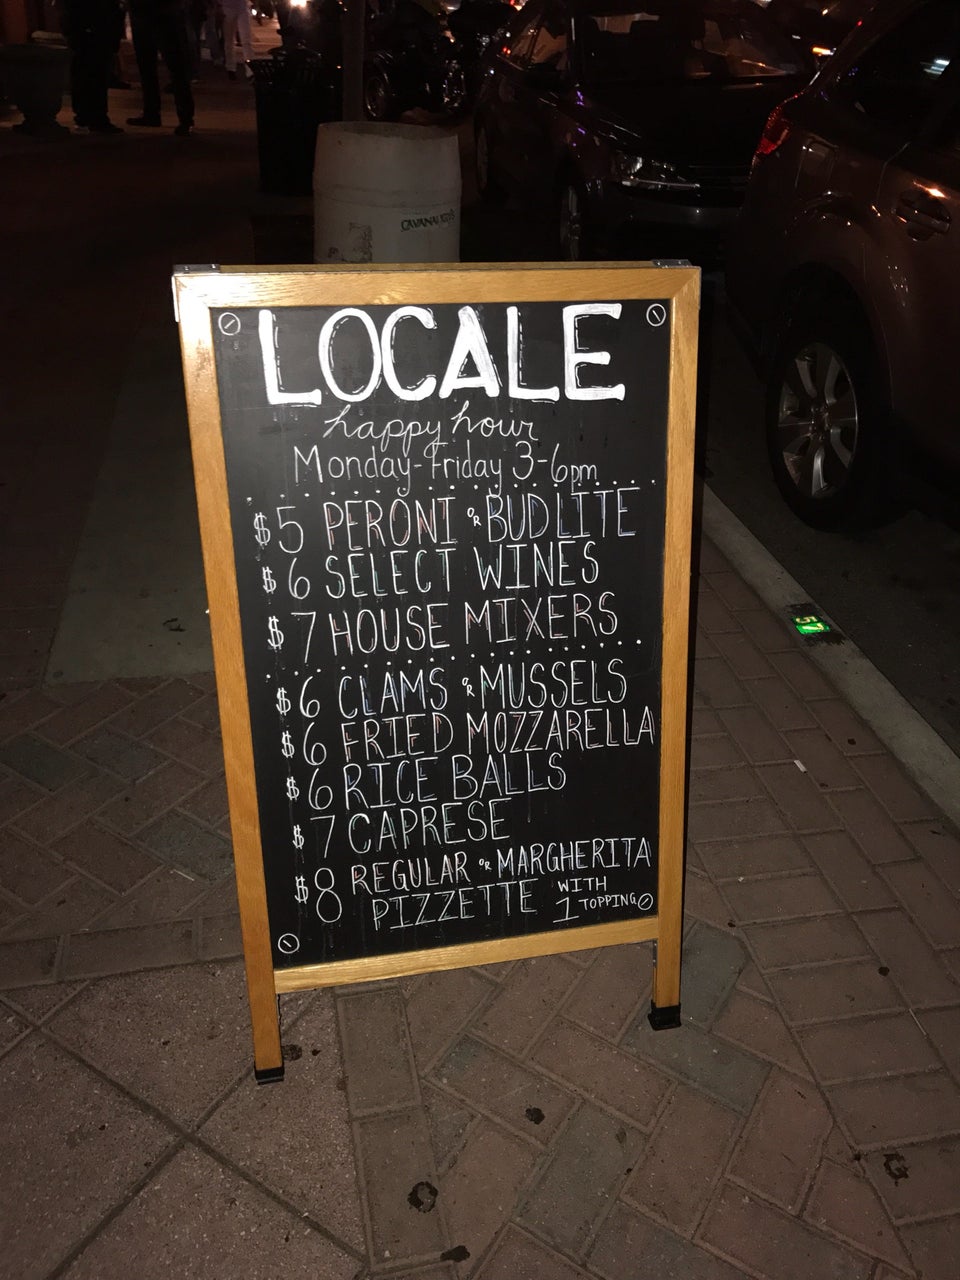 CAVANAUGH'S
LOCALE
happy hour
Monday-Friday 3-6pm
$5 PERONI OR BUD LITE
$6 SELECT WINES
$7 HOUSE MIXERS
$6 CLAMS OR MUSSELS
$6 FRIED MOZZARELLA
$6 RICE BALLS
$7 CAPRESE
$8 REGULAR OR MARGHERITA
PIZZETTE WITH
1 TOPPING
57